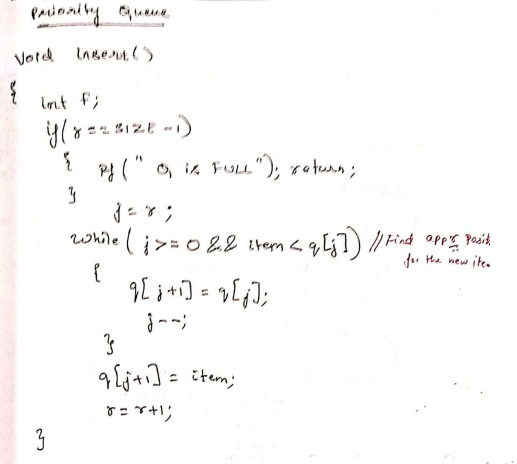 Priority Queue
Void Insert()
{
int f;
if(r==SIZE-1)
{ pf("Q is FULL"); return;
}
j=r;
while(j>=0 && item<q[j]) //Find appr posit
for the new item
{
q[j+1]=q[j];
j--;
}
q[j+1]=item;
r=r+1;
}